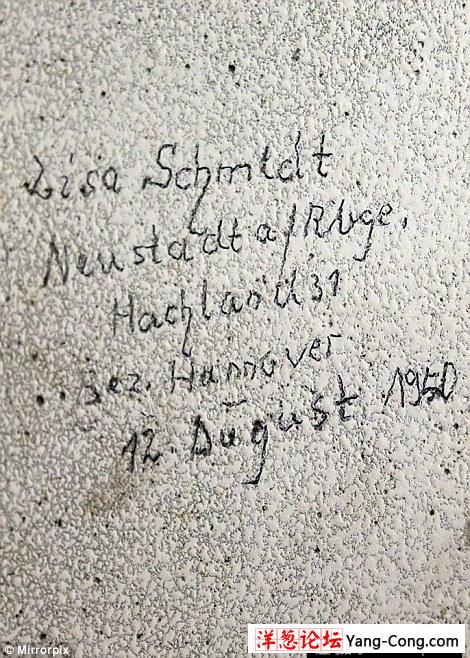 Lisa Schmidt
Neustadt a/Rbge.
Hachland 31
Bez. Hannover
12. August 1950
© Mirrorpix
洋葱论坛 Yang-Cong.com